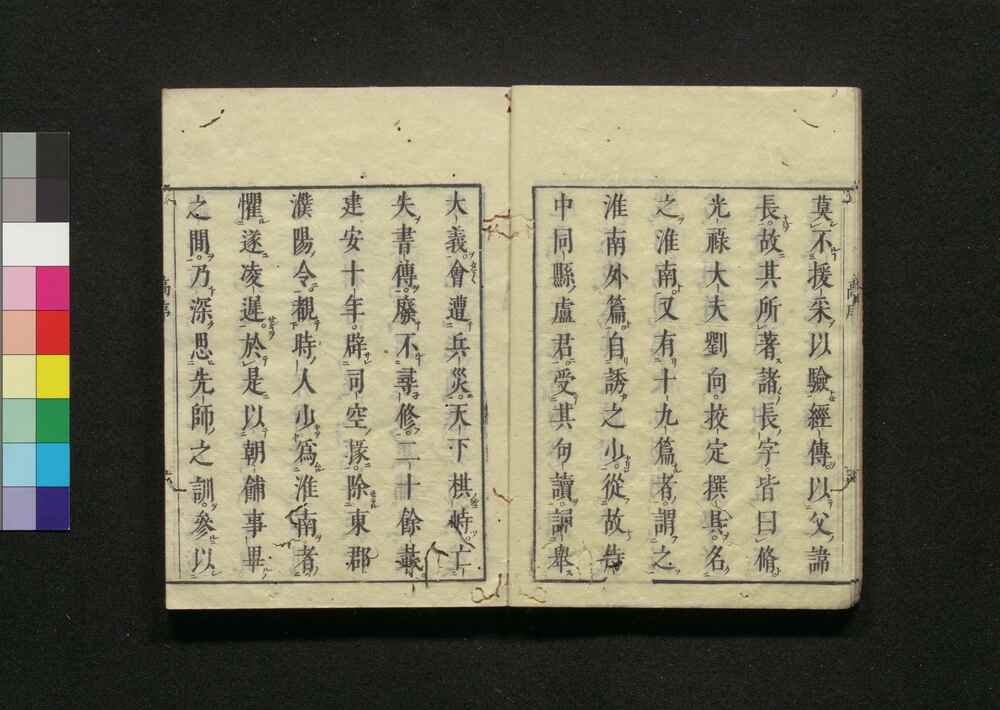 莫不援采以驗經傳以父諱
長故其所著諸長字皆曰脩
光祿大夫劉向挍定撰具名
之淮南又有十九篇者謂之
淮南外篇自誘之少從故侍
中同縣盧君受其句讀誦舉
大義會遭兵災天下棋峙亡
失書傳廢不尋修二十餘載
建安十年辟司空掾除東郡
濮陽令覩時人少爲淮南者
懼遂凌遲於是以朝餔事畢
之間乃深思先師之訓參以